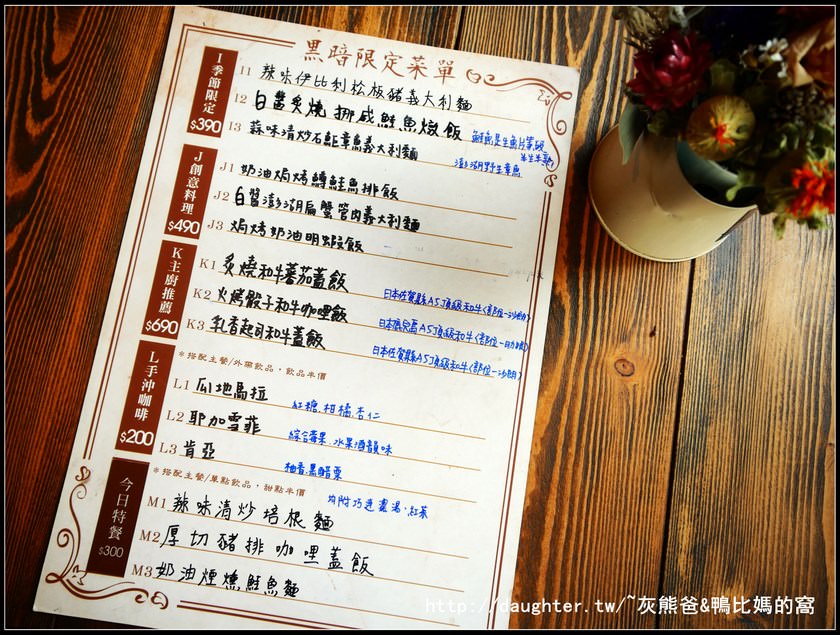 黑暗限定菜單
I季節限定
$390
I1 辣味伊比利松板豬義大利麵
I2 白醬炙燒挪威鮭魚燉飯
I3 蒜味清炒石鮔章魚義大利麵
澎湖野生章魚
J創意料理
$490
J1 奶油焗烤鱒鮭魚排飯
J2 白醬澎湖扁蟹管肉義大利麵
J3 焗烤奶油明蝦飯
K主廚推薦
$690
K1 炙燒和牛蕃茄蓋飯
日本佐賀縣A5頂級和牛(部位-沙朗)
K2 火烤骰子和牛咖哩飯
日本鹿兒島A5頂級和牛
K3 乳香起司和牛蓋飯
日本佐賀縣A5頂級和牛(部位-沙朗)
*搭配主餐/外帶飲品，飲品半價
L手沖咖啡
$200
L1 瓜地馬拉
紅糖.柑橘.杏仁
L2 耶加雪菲
綜合莓果.水果酒韻味
L3 肯亞
柚香.黑醋栗
*搭配主餐/單點飲品，甜點半價
均附巧達濃湯.紅茶
今日特餐
$300
M1 辣味清炒培根麵
M2 厚切豬排咖哩蓋飯
M3 奶油煙燻鮭魚麵
http://daughter.tw/~灰熊爸&鴨比媽的窩